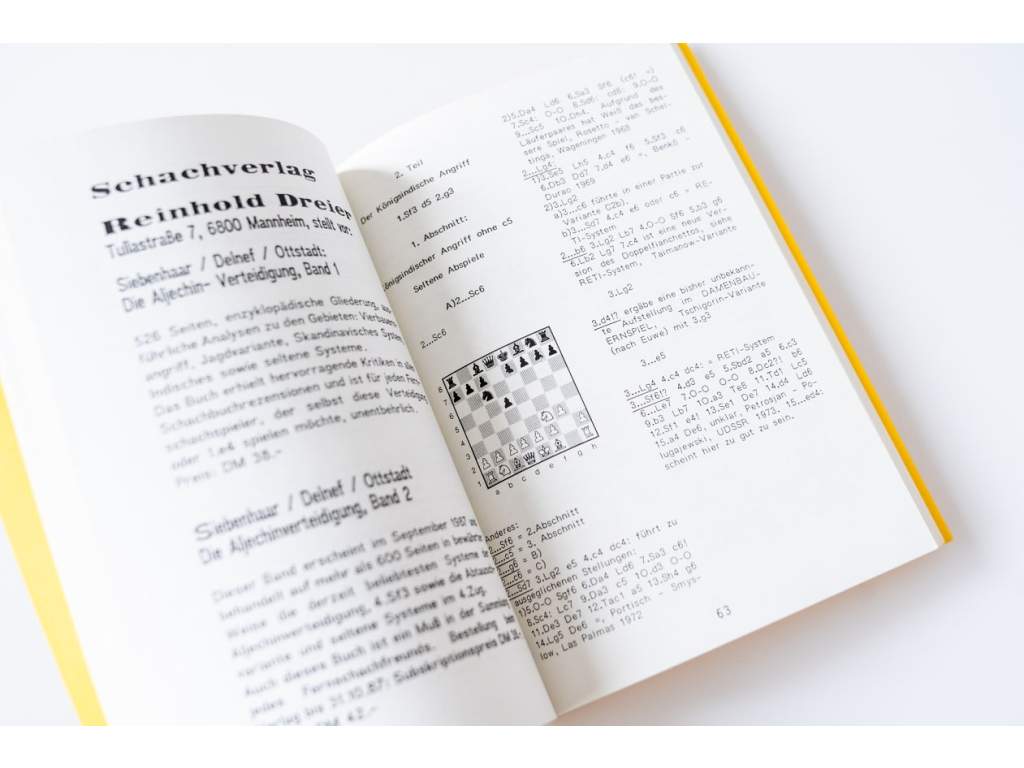 Schachverlag
Reinhold Dreier
Tullastraße 7, 6800 Mannheim, stellt vor:
Siebenhaar / Delnef / Ottstadt:
Die Aljechin- Verteidigung, Band 1
526 Seiten, enzyklopädische Gliederung, aus-
führliche Analysen zu den Gebieten: Vierbauern-
angriff, Jagdvariante, Skandinavisches System
Indisches sowie seltene Systeme.
Das Buch erhielt hervorragende Kritiken in
Schachbuchrezensionen und ist für jeden Fern-
schachspieler, der selbst diese Verteidigung
oder 1.e4 spielen möchte, unentbehrlich.
Preis: DM 38.-
Siebenhaar / Delnef / Ottstadt
Die Aljechinverteidigung, Band 2
Dieser Band erscheint im September 1987
behandelt auf mehr als 600 Seiten in bewährter
Weise die derzeit beliebtesten Systeme
Aljechinverteidigung, 4.Sf3 sowie die Abtausch-
variante und seltene Systeme im 4.Zug.
Auch dieses Buch ist ein Muß in der Sammlung
jedes Fernschachfreunds. Bestellung
bis 31.10.87: Subskriptionspreis DM 38.-
DM 42.-
2. Teil
Der Königsindische Angriff
1.Sf3 d5 2.g3
1. Abschnitt:
Königsindischer Angriff ohne c5
Seltene Abspiele
A)2...Sc6
2...Sc6
8
7
6
5
4
3
2
1
a b c d e f g h
Anderes:
2...Sf6 = 2.Abschnitt
2...c5 = 3. Abschnitt
2...g6 = B)
2...c6 = C)
2...Sd7 3.Lg2 e5 4.c4 dc4: führt zu
ausgeglichenen Stellungen:
1)5.O-O Sgf6 6.Da4 Ld6 7.Sa3 c6!
8.Sc4: Lc7 9.Da3 c5 10.d3 O-O
11.De3 De7 12.Tac1 a5 13.Sh4 g6
14.Lg5 De6 =, Portisch - Smys-
low, Las Palmas 1972
2)5.Da4 Ld6 6.Sa3 Sf6 (c6! =)
7.Sc4: O-O 8.Sd6: cd6: 9.O-O
9...Sc5 10.Dh4. Aufgrund des
Läuferpaares hat Weiß das bes-
sere Spiel, Rosetto - van Schel-
tinga, Wageningen 1968
2...Lg4:
1)3.Se5 Lh5 4.c4 f6 5.Sf3 c6
6.Db3 Dd7 7.d4 e6 =, Benkö -
Durao 1969
2)3.Lg2
a)3...c6 führte in einer Partie zur
Variante C2b).
b)3...Sd7 4.c4 e6 oder c6 = RE-
TI-System
2...b6 3.Lg2 Lb7 4.O-O Sf6 5.b3 g6
6.Lb2 Lg7 7.c4 ist eine neue Ver-
sion des Doppelfianchettos, siehe
RETI-System, Taimanow-Variante
3.Lg2
3.d4!? ergäbe eine bisher unbekann-
te Aufstellung im DAMENBAU-
ERNSPIEL, Tschigorin-Variante
(nach Euwe) mit 3.g3
3...e5
3...Lg4 4.c4 dc4: = RETI-System
3...Sf6!? 4.d3 e5 5.Sbd2 a5 6.c3
6...Le7 7.O-O O-O 8.Dc2?! b6
9.b3 Lb7 10.a3 Te8 11.Td1 Lc5
12.Sf1 e4! 13.Se1 De7 14.d4 Ld6
15.a4 De6, unklar, Petrosjan - Po-
lugajewski, UDSSR 1973, 15...ed4:
scheint hier zu gut zu sein.
63